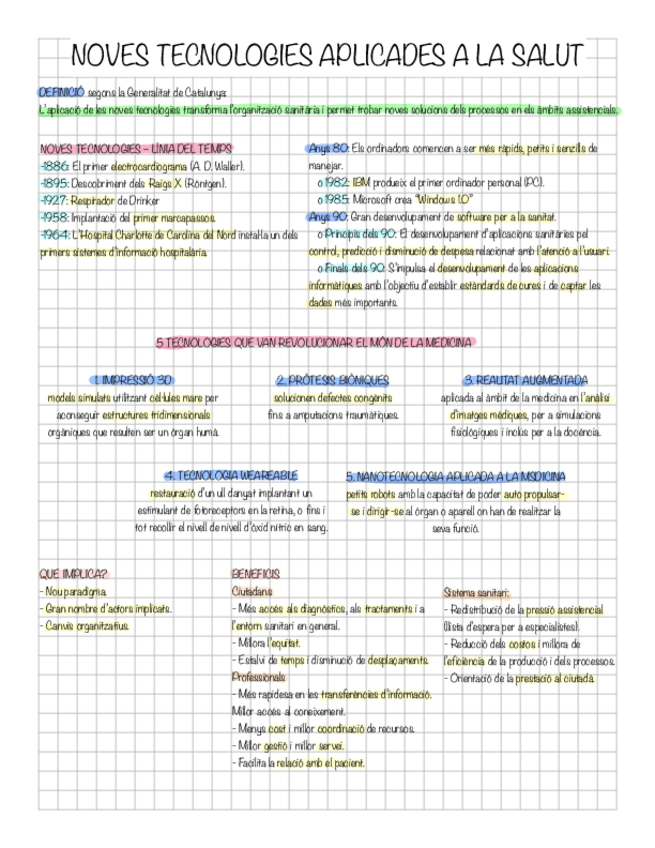 NOVES TECNOLOGIES APLICADES A LA SALUT
DEFINICIÓ segons la Generalitat de Catalunya:
L'aplicació de les noves tecnologies transforma l'organització sanitària i permet trobar noves solucions dels processos en els àmbits assistencials.
NOVES TECNOLOGIES – LÍNIA DEL TEMPS
-1886: El primer electrocardiograma (A. D. Waller).
-1895: Descobriment dels Raigs X (Röntgen).
-1927: Respirador de Drinker
-1958: Implantació del primer marcapassos.
-1964: L'Hospital Charlotte de Carolina del Nord instal·la un dels
primers sistemes d'informació hospitalària.
Anys 80: Els ordinadors comencen a ser més ràpids, petits i senzills de
manejar.
o 1982: IBM produeix el primer ordinador personal (PC).
o 1985: Microsoft crea "Windows 1.0"
Anys 90: Gran desenvolupament de software per a la sanitat.
o Principis dels 90: El desenvolupament d'aplicacions sanitàries pel
control, predicció i disminució de despesa relacionat amb l'atenció a l'usuari.
o Finals dels 90: S'impulsa el desenvolupament de les aplicacions
informàtiques amb l'objectiu d'establir estàndards de cures i de captar les
dades més importants.
5 TECNOLOGIES QUE VAN REVOLUCIONAR EL MÓN DE LA MEDICINA
1. IMPRESSIÓ 3D
models simulats utilitzant cèl·lules mare per
aconseguir estructures tridimensionals
orgàniques que resulten ser un òrgan humà.
2. PRÒTESIS BIÒNIQUES
solucionen defectes congènits
fins a amputacions traumàtiques.
3. REALITAT AUGMENTADA
aplicada al àmbit de la medicina en l'anàlisi
d'imatges mèdiques, per a simulacions
fisiològiques i inclús per a la docència.
4. TECNOLOGIA WEAREABLE
restauració d'un ull danyat implantant un
estimulant de fotoreceptors en la retina, o fins i
tot recollir el nivell de nivell d'òxid nítric en sang.
5. NANOTECNOLOGIA APLICADA A LA MSDICINA
petits robots amb la capacitat de poder auto propulsar-
se i dirigir-se al òrgan o aparell on han de realitzar la
seva funció.
QUE IMPLICA?
- Nou paradigma.
- Gran nombre d'actors implicats.
- Canvis organitzatius.
BENEFICIS
Ciutadans
- Més accés als diagnòstics, als tractaments i a
l'entorn sanitari en general.
- Millora l'equitat.
- Estalvi de temps i disminució de desplaçaments.
Professionals
- Més rapidesa en les transferències d'informació.
Millor accés al coneixement.
- Menys cost i millor coordinació de recursos.
- Millor gestió i millor servei.
- Facilita la relació amb el pacient.
Sistema sanitari:
- Redistribució de la pressió assistencial
(llista d'espera per a especialistes).
- Reducció dels costos i millora de
l'eficiència de la producció i dels processos.
- Orientació de la prestació al ciutadà.